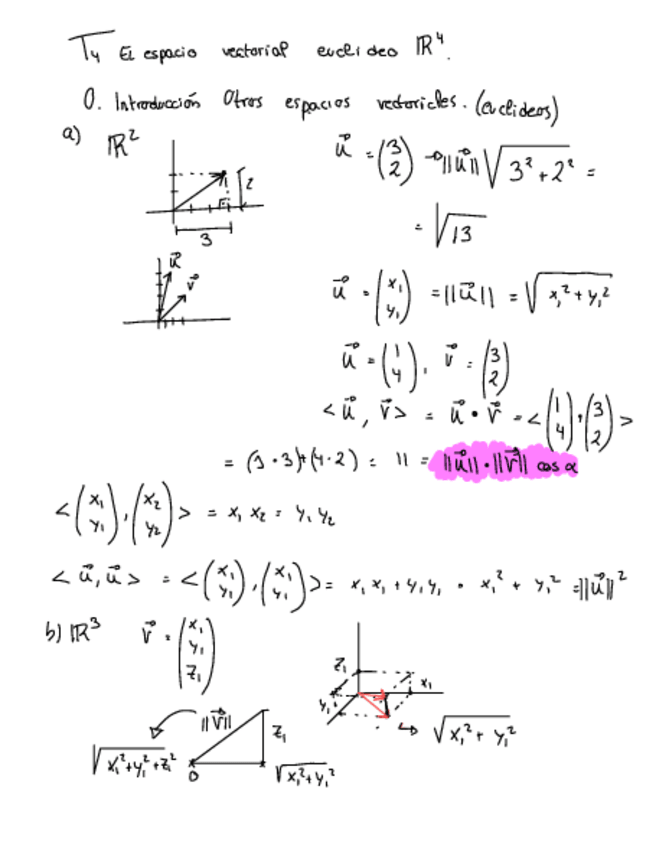 T4 El espacio vectorial euclideo ℝ⁴.
0. Introducción Otros espacios vectoriales. (euclideos)
a) ℝ²
2
3
u⃗ = (3 2) → ||u⃗|| √(3² + 2²) =
= √13
u⃗ v⃗
u⃗ = (x₁ y₁) = ||u⃗|| = √(x₁² + y₁²)
u⃗ = (1 4), v⃗ = (3 2)
< u⃗, v⃗ > = u⃗ · v⃗ = < (1 4), (3 2) >
= (1 · 3) + (4 · 2) = 11 = ||u⃗|| · ||v⃗|| cos α
< (x₁ y₁), (x₂ y₂) > = x₁ x₂ = y₁ y₂
< u⃗, u⃗ > = < (x₁ y₁), (x₁ y₁) > = x₁ x₁ + y₁ y₁ = x₁² + y₁² = ||u⃗||²
b) ℝ³ v⃗ = (x₁ y₁ z₁)
z₁ x₁ y₁
↳ √(x₁² + y₁²)
||v⃗|| z₁
√(x₁² + y₁² + z₁²) 0 √(x₁² + y₁²)